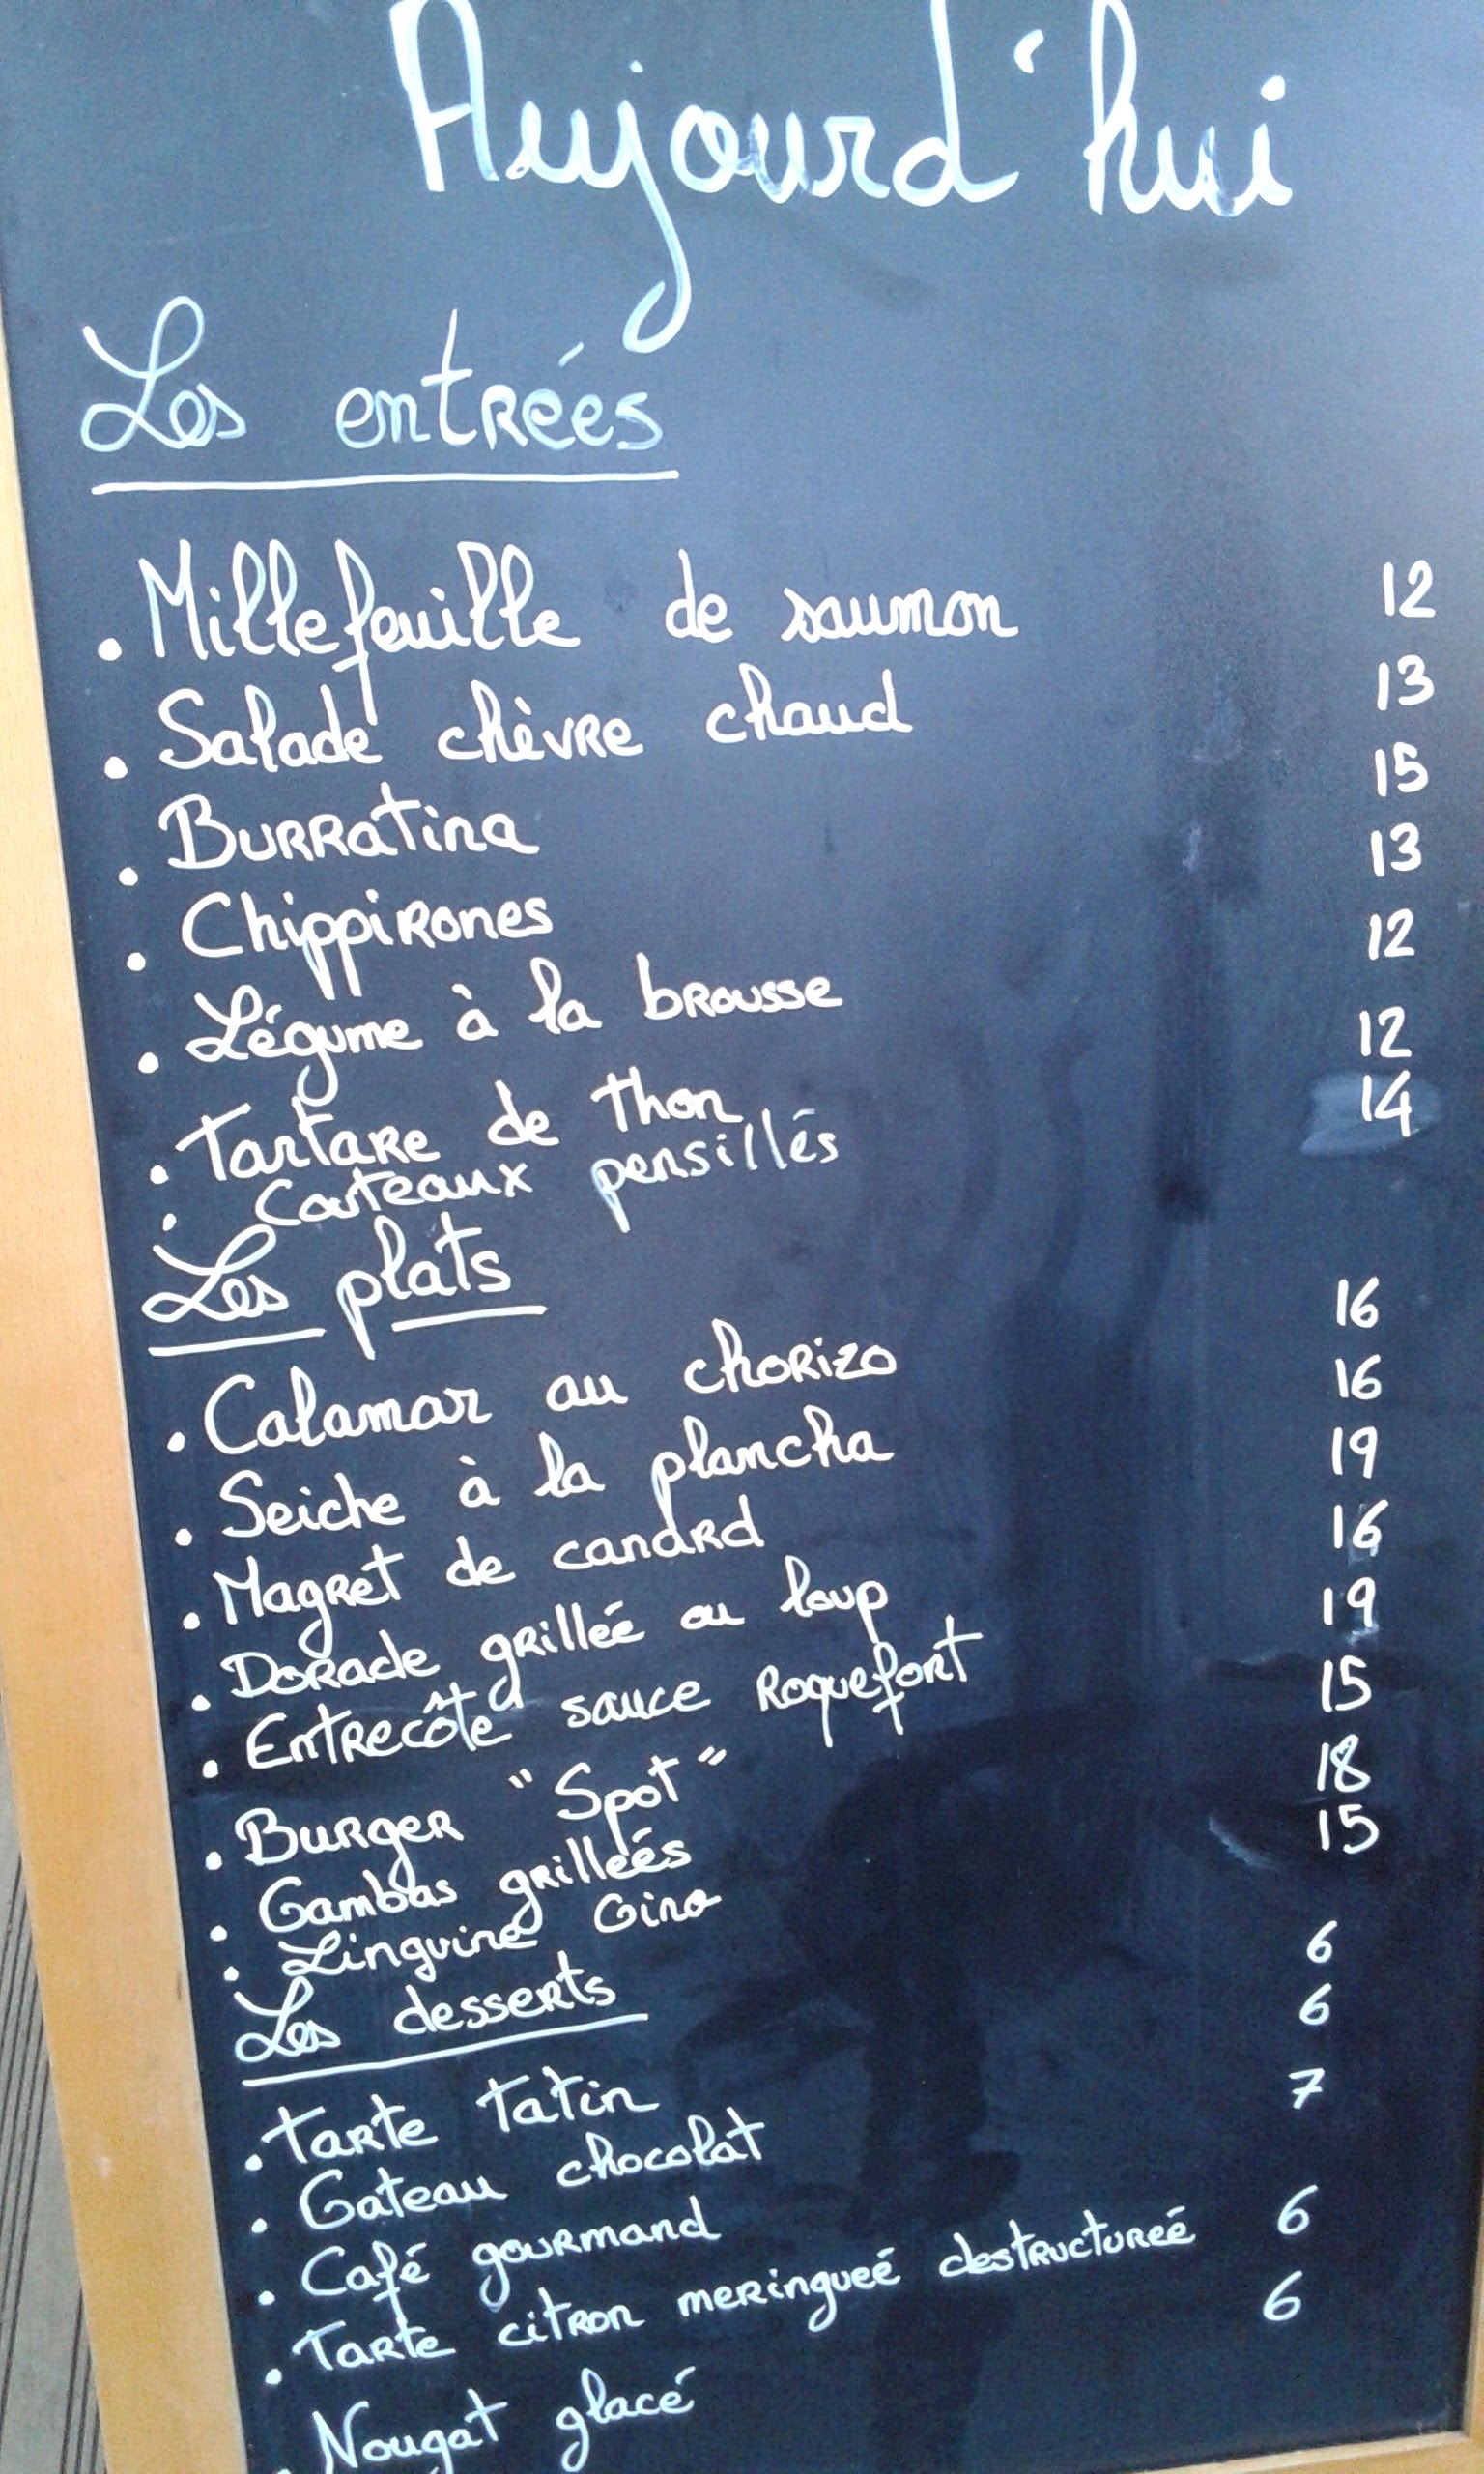 Aujourd'hui
Les entrées
. Millefeuille de saumon 12
. Salade chèvre chaud 13
. Burratina 15
. Chippirones 13
. Légume à la brousse 12
. Tartare de thon 12
. Couteaux pensillés 14
Les plats
. Calamar au chorizo 16
. Seiche à la plancha 16
. Magret de canard 19
. Dorade grillée ou loup 16
. Entrecôte sauce Roquefort 19
. Burger "Spot" 15
. Gambas grilleés 18
. Linguine Gino 15
Les desserts
. Tarte Tatin 6
. Gateau chocolat 6
. Café gourmand 7
. Tarte citron meringueé destructureé 6
. Nougat glacé 6